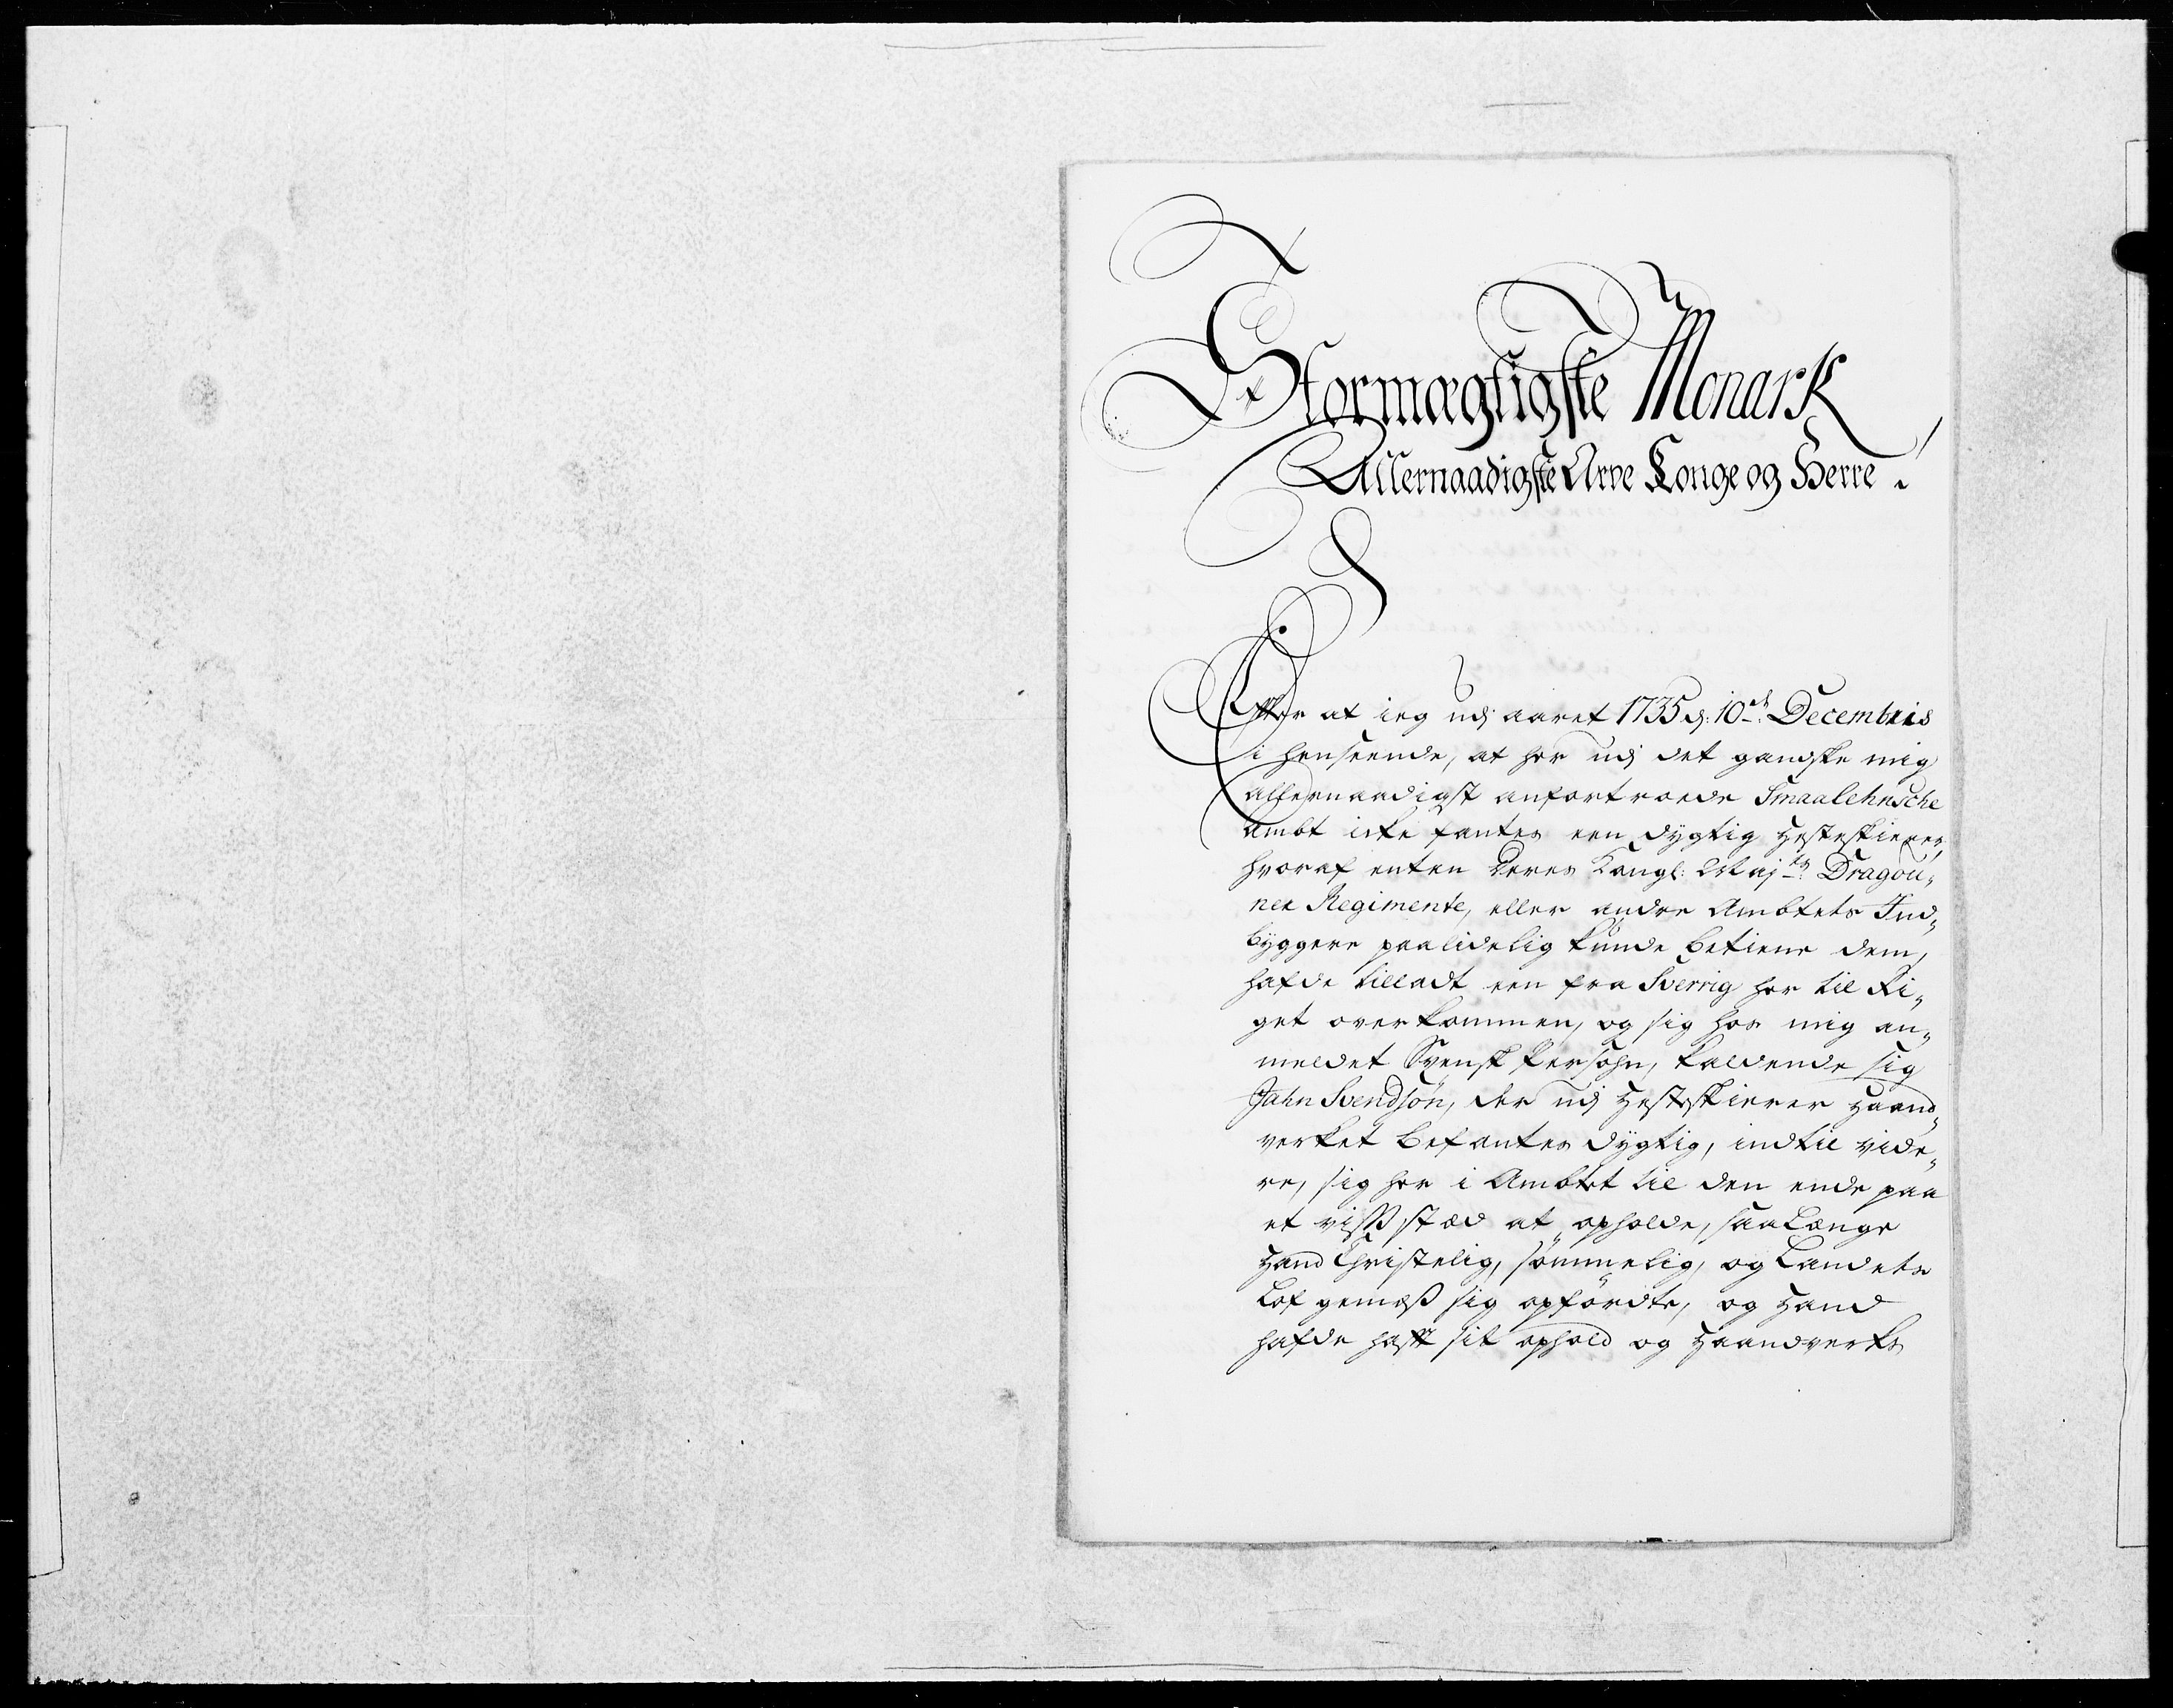 Stormægtigste Monark
Allernaadigste Arve Konge og Herre.
Efter at ieg udj aaret 1735 d: 10de Decembris
i henseende, at her udj det gandske mig
allernaadigst anfortroede Smaalehnsche
Ambt icke fantes een dygtig Hesteskierer,
hvoraf enten Deres Kongl: Majts Dragou¬
ner Regimente, eller andre Ambtets Ind¬
byggere paalidelig kunde betiene dem,
hafde tilladt een fra Sverrig her til Ri¬
get overkommen, og sig hos mig an¬
meldet Svensk Persohn, kaldende sig
Jahn Svendsön, der udj Hesteskierer Haand¬
verket befantes dygtig, indtil vide¬
re, sig her i Ambtet til den ende paa
et visst stæd at opholde, saalænge
Hand Christelig, sömmelig, og Landets
Lof gemæß sig opfördte, og Hand
hafde hafft sit ophold og Haandverks